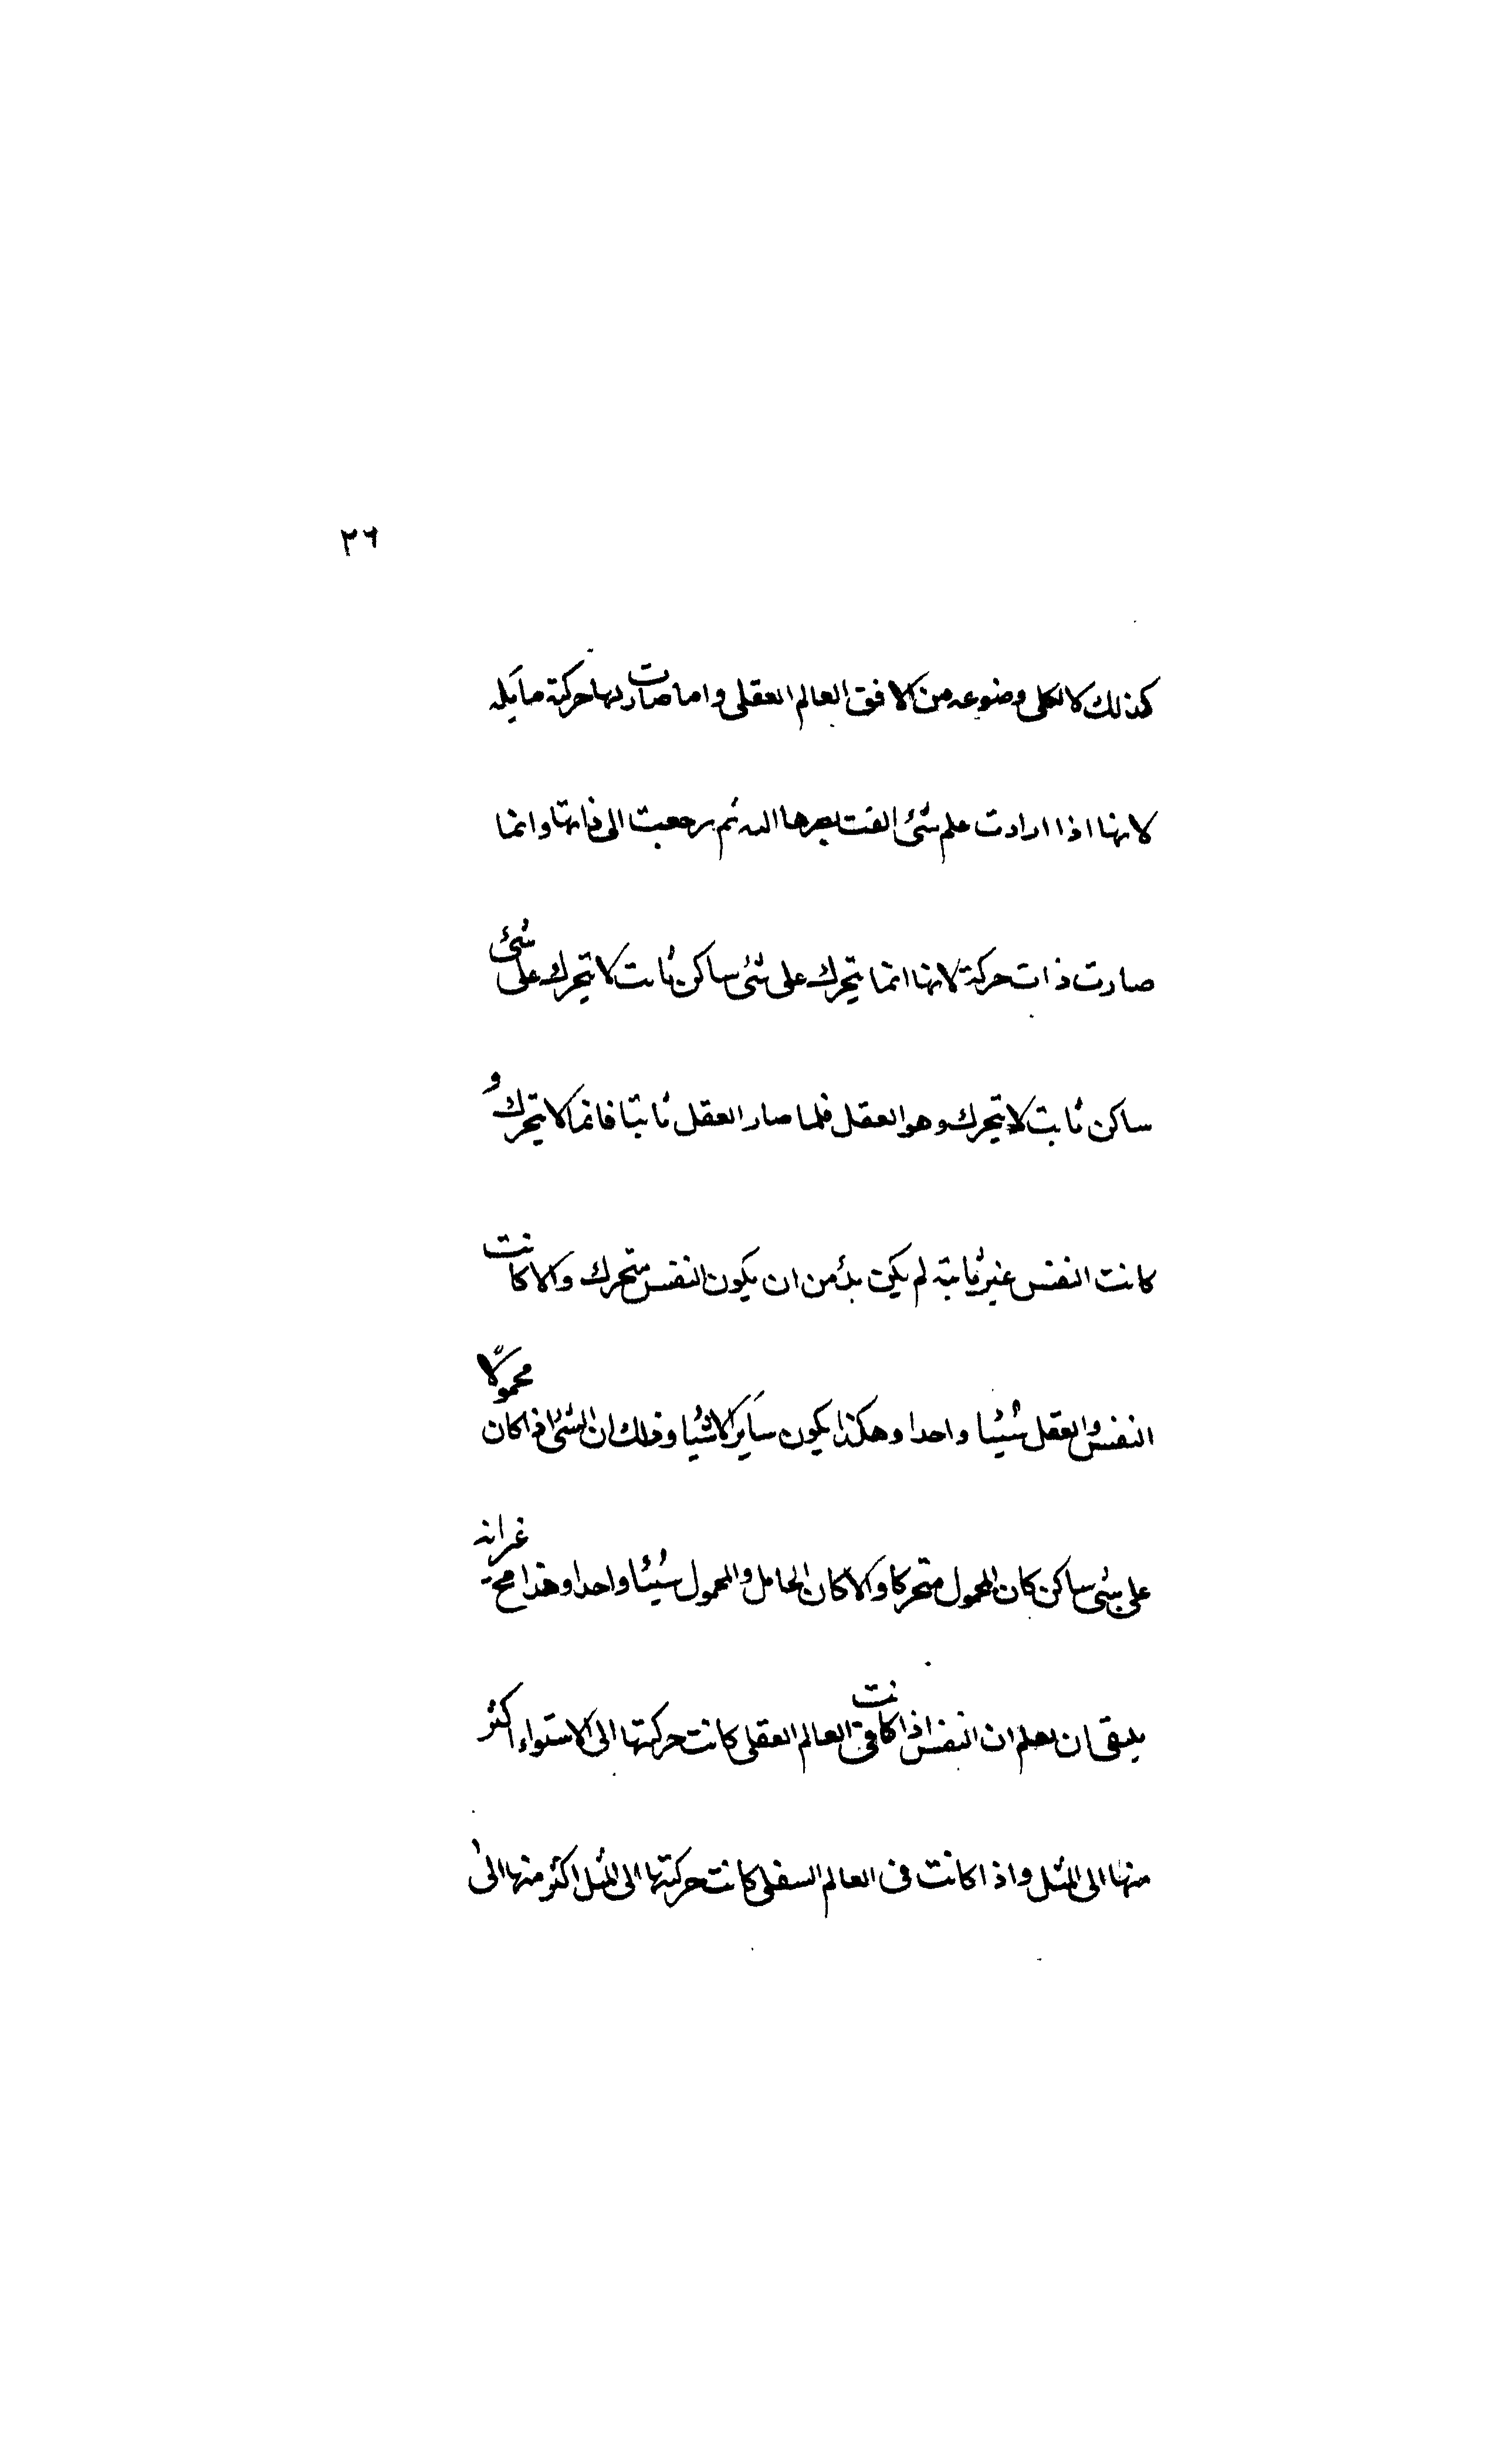 ٣٦
كذلك لالكلى وضوعه من الافق العالم العقلى واما صارت لها حركة مايله
لانها اذا ارادت علم شئ القت بصرها اليه ثم رجعت الى ذاتها وانما
صارت ذات حركة لانها انما يتحرك على شئ ساكن ثابت لا يتحرك على شئ
ساكن ثابت لا يتحرك وهو العقل فلما صار العقل ثابتا فانما لا يتحرك و
كانت النفس غير ثابتة لم يكن بد من ان يكون النفس متحرك والا كانت
النفس والعقل شيئا واحدا وهكذا يكون ساير الاشيا وذلك ان الشئ اذا كان محمولا
على شئ ساكن كان المحمول متحركا والا كان الحامل والمحمول شيئا واحدا وهذا مح غر انه
ينبغى ان يعلم ان النفس اذا كانت فى العالم العقلى كانت حركتها الى الاستواء اكثر
منها الى الميل واذا كانت فى العالم السفلى كانت حركتها الى الميل اكثر منها الى